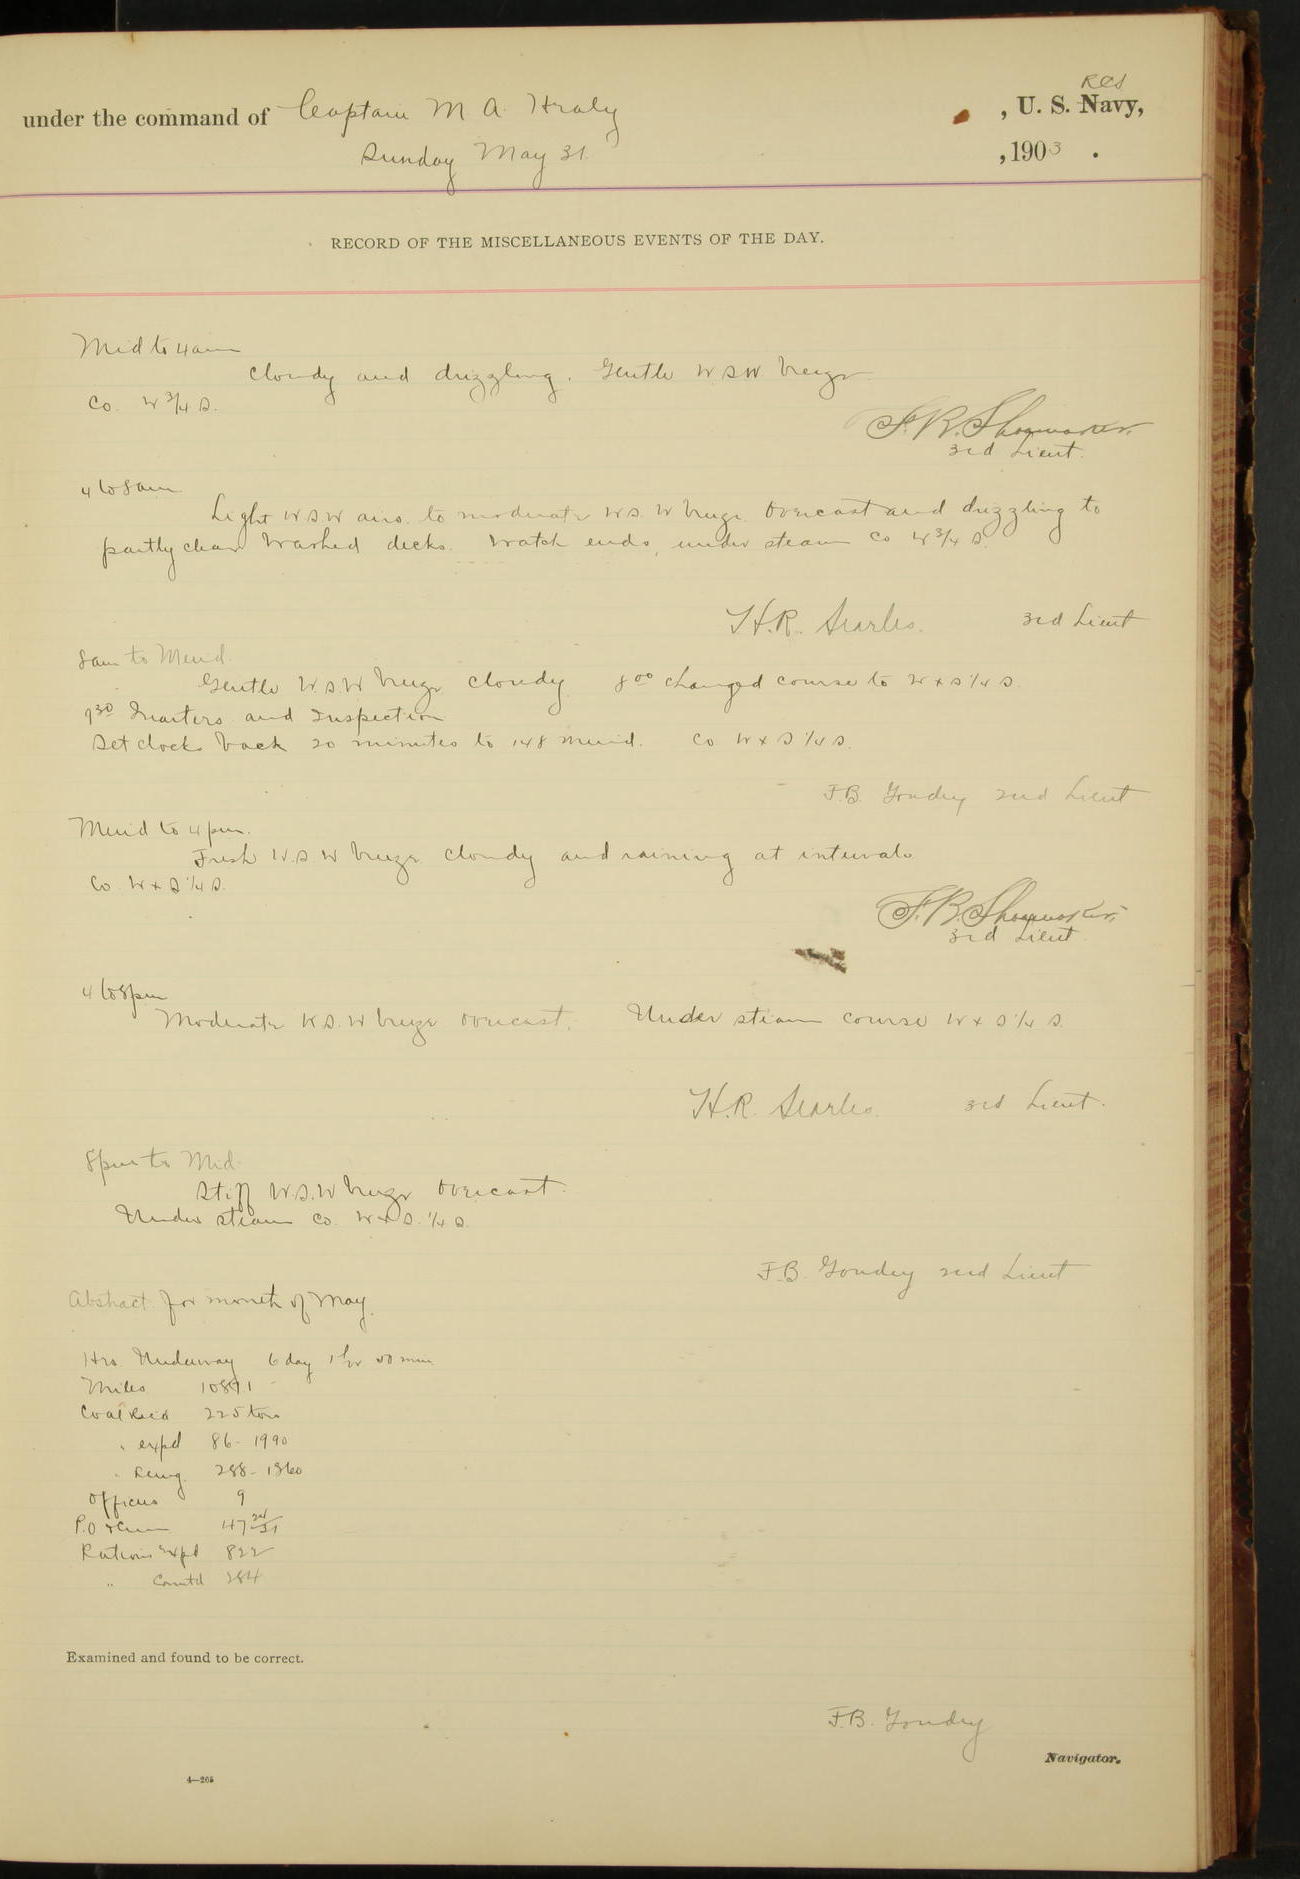 under the command of Captain M A Healy, U. S. Navy, RCS
Sunday May 31, 1903.
RECORD OF THE MISCELLANEOUS EVENTS OF THE DAY.
Mid to 4 am
Cloudy and drizzling. Gentle W S W breeze
Co. W 3/4 S.
F. R. Shoemaker.
3rd Lieut.
4 to 8 am
Light W S W airs. to moderate W S. W breeze Overcast and drizzling to
partly clear Washed decks. Watch ends, under steam Co W 3/4 S.
H. R. Searles. 3rd Lieut
8 am to Merid.
Gentle W. S. W breeze cloudy 8 00 changed course to W x S 1/4 S.
9 30 Quarters and Inspection
Set clocks back 20 minutes to 148 merid. Co W x S 1/4 S.
F. B. Goudey 2nd Lieut
Merid to 4 pm.
Fresh W. S W breeze cloudy and raining at intervals
Co. W x S 1/4 S.
F. R. Shoemaker,
3rd Lieut.
4 to 8 pm
Moderate W S. W breeze overcast. Under steam course W x S 1/4 S.
H. R. Searles. 3rd Lieut.
8 pm to Mid.
Stiff W. S. W breeze overcast.
Under steam Co. W x S. 1/4 S.
F. B. Goudey 2nd Lieut
Abstract for month of May.
Hrs Underway 6 day 1 hr 50 min
Miles 1089.1
Coal Rec'd 225 tons
" expd 86 - 1990
" Remg. 288 - 1360
Officers 9
P. O & Crew 47 24/31
Rations Expd 822
" Comtd 284
Examined and found to be correct.
F. B. Goudey
Navigator.
4—265